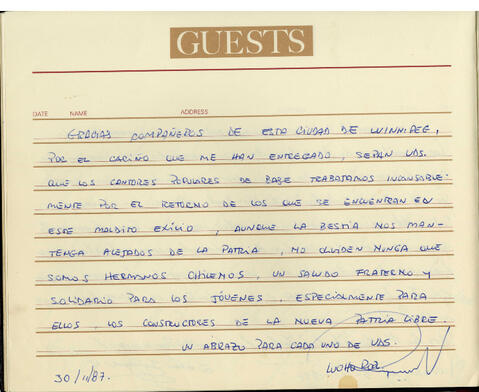 GUESTS
DATE NAME ADDRESS
GRACIAS COMPAÑEROS DE ESTA CIUDAD DE WINNIPEG,
POR EL CARIÑO QUE ME HAN ENTREGADO, SEPAN UDS.
QUE LOS CANTORES POPULARES DE BASE TRABATAMOS INCANSABLE-
MENTE POR EL RETORNO DE LOS QUE SE ENCUENTRAN EN
ESTE MALDITO EXILIO, AUNQUE LA BESTIA NOS MAN-
TENGA ALEJADOS DE LA PATRIA, NO OLVIDEN NUNCA QUE
SOMOS HERMANOS CHILENOS, UN SALUDO FRATERNO Y
SOLIDARIO PARA LOS JÓVENES, ESPECIALMENTE PARA
ELLOS, LOS CONSTRUCTORES DE LA NUEVA PATRIA LIBRE.
UN ABRAZO PARA CADA UNO DE UDS.
30/11/87.